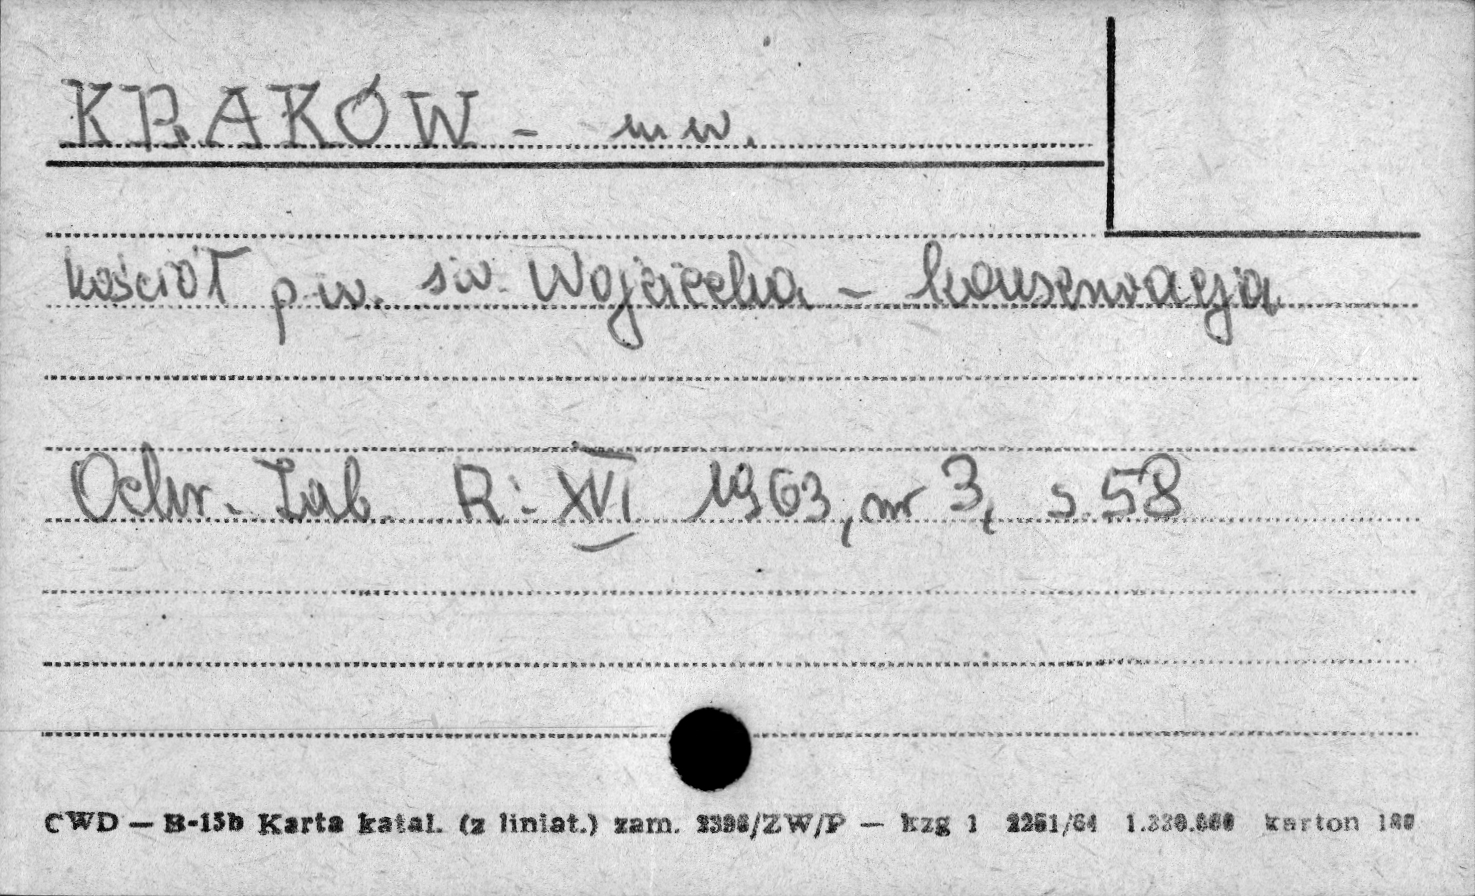 KRAKÓW - m w.
kościół p.w. św. Wojciecha - konserwacja
Ochr. Zab. R: XVI 1963, nr 3, s. 58
CWD — B-15b Karta katal. (z liniat.) zam. 2398/ZW/P — kzg 1 2251/64 1.330.000 karton 180